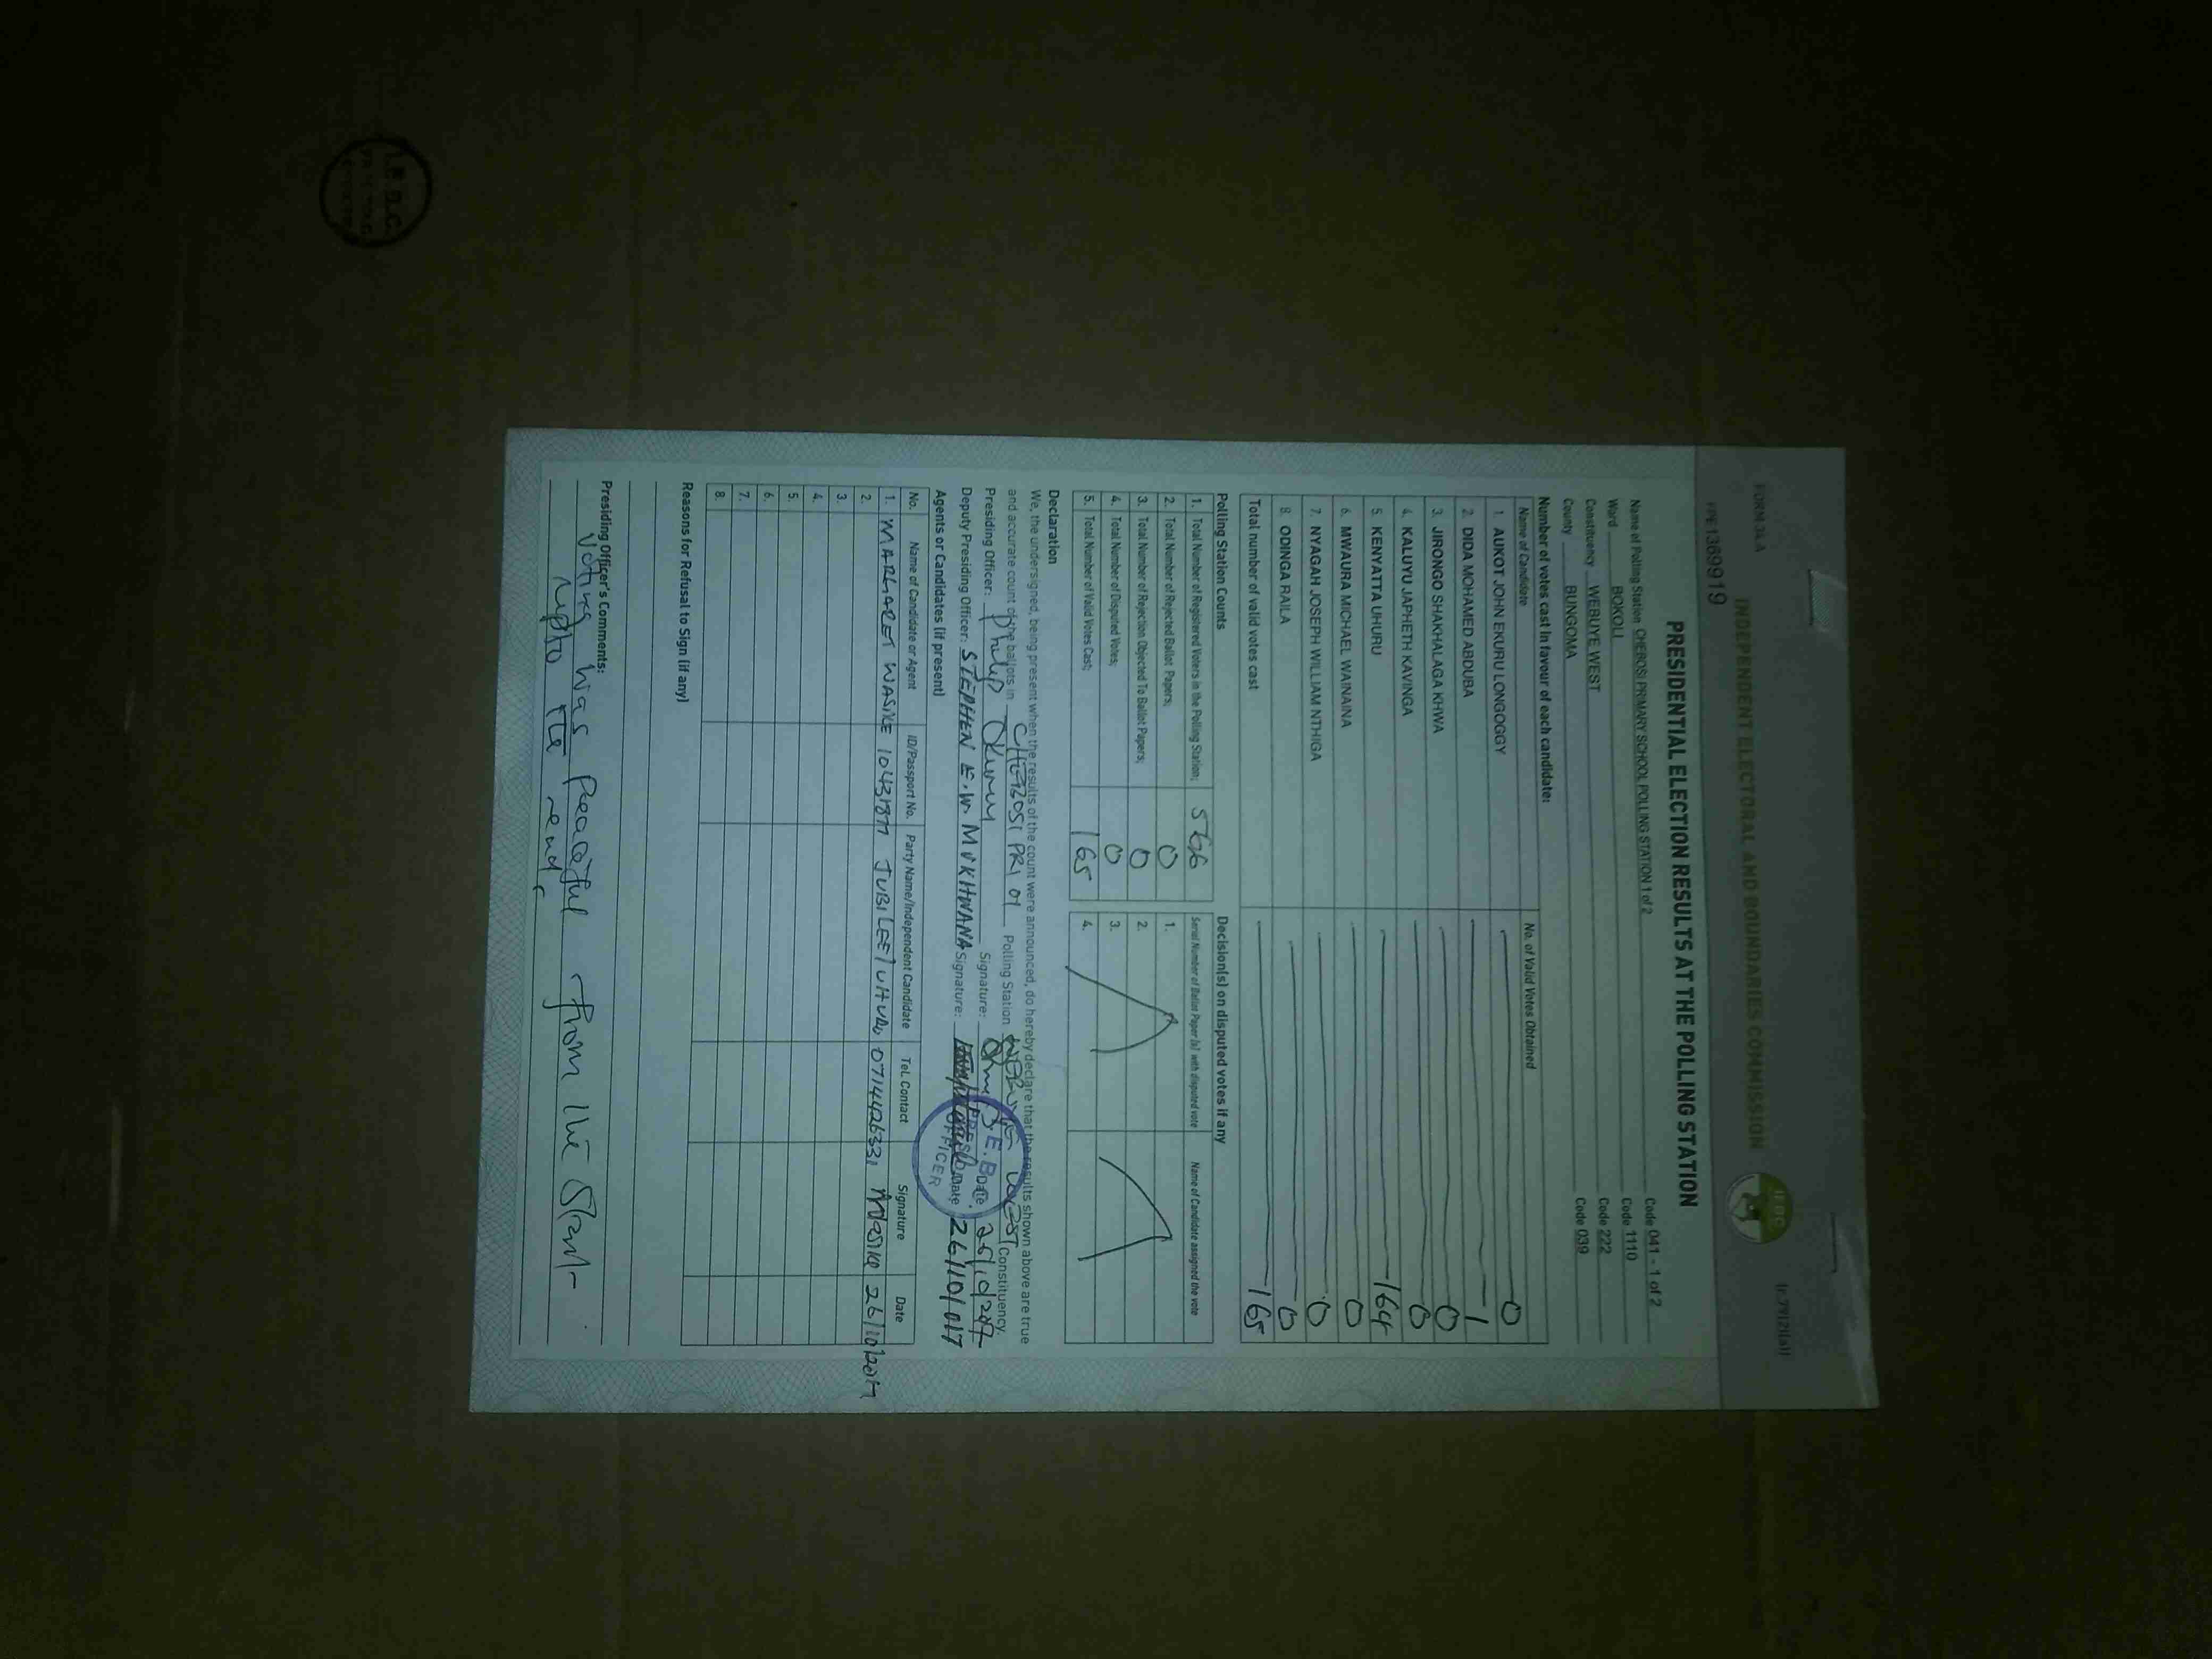 FORM 34 A
INDEPENDENT ELECTORAL AND BOUNDARIES COMMISSION
IEBC
PE1369919
PRESIDENTIAL ELECTION RESULTS AT THE POLLING STATION
Name of Polling Station CHEBOSI PRIMARY SCHOOL POLLING STATION 1 of 2 Code 041 - 1 of 2
Ward BOKOLI Code 1110
Constituency WEBUYE WEST Code 222
County BUNGOMA Code 039
Number of votes cast in favour of each candidate:
Name of Candidate No. of Valid Votes Obtained
1. AUKOT JOHN EKURU LONGOGGY 0
2. DIDA MOHAMED ABDUBA 1
3. JIRONGO SHAKHALAGA KHWA 0
4. KALUYU JAPHETH KAVINGA 0
5. KENYATTA UHURU 164
6. MWAURA MICHAEL WAINAINA 0
7. NYAGAH JOSEPH WILLIAM NTHIGA 0
8. ODINGA RAILA 0
Total number of valid votes cast 165
Polling Station Counts Decision(s) on disputed votes if any
1. Total Number of Registered Voters in the Polling Station; 566 Serial Number of Ballot Paper (s) with disputed vote Name of Candidate assigned the vote
2. Total Number of Rejected Ballot Papers; 0 1.
3. Total Number of Rejection Objected To Ballot Papers; 0 2.
4. Total Number of Disputed Votes; 0 3.
5. Total Number of Valid Votes Cast; 165 4.
Declaration
We, the undersigned, being present when the results of the count were announced, do hereby declare that the results shown above are true
and accurate count of the ballots in CHEBOSI PRI 01 Polling Station WEBUYE WEST Constituency.
Presiding Officer: Philip Signature: Date: 26/10/2017
Deputy Presiding Officer: STEPHEN E.W. MUKHWANA Signature: Date 26/10/017
PRESIDING OFFICER
Agents or Candidates (if present)
No. Name of Candidate or Agent ID/Passport No. Party Name/Independent Candidate Tel. Contact Signature Date
1. MARGARET WASIKE JUBILEE/UHURU 0714426331 MWasike 26/10/2017
2.
3.
4.
5.
6.
7.
8.
Reasons for Refusal to Sign (if any)
Presiding Officer's Comments:
Voting was peaceful from the start
upto the end.